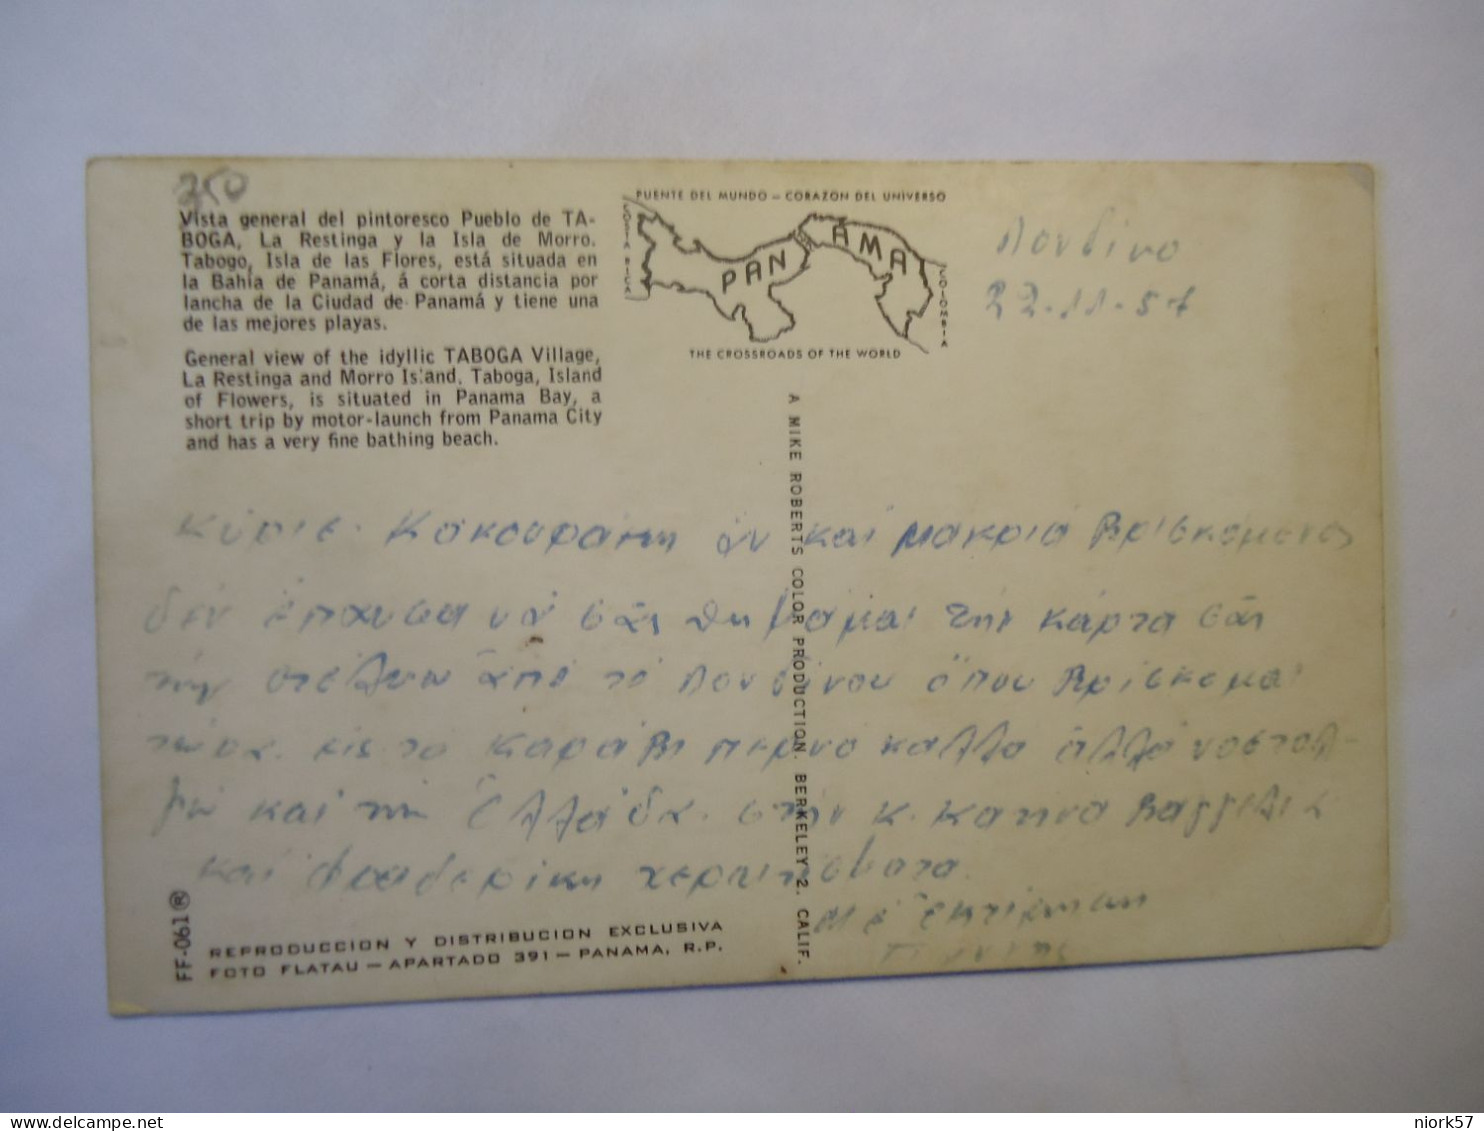 350
Vista general del pintoresco Pueblo de TA-
BOGA, La Restinga y la Isla de Morro.
Tabogo, Isla de las Flores, está situada en
la Bahía de Panamá, á corta distancia por
lancha de la Ciudad de Panamá y tiene una
de las mejores playas.
General view of the idyllic TABOGA Village,
La Restinga and Morro Island. Taboga, Island
of Flowers, is situated in Panama Bay, a
short trip by motor-launch from Panama City
and has a very fine bathing beach.
PUENTE DEL MUNDO – CORAZON DEL UNIVERSO
COSTA RICA
PANAMA
COLOMBIA
THE CROSSROADS OF THE WORLD
Λονδίνο
22-11-57
A MIKE ROBERTS COLOR PRODUCTION. BERKELEY 2, CALIF.
Κύριε Κακουράκη ἄν καί μακριά βρισκόμενος
δέν ἔπαυσα νά σᾶς θυμᾶμαι τήν κάρτα σᾶς
τήν στέλνω ἀπό τό Λονδίνου ὅπου βρίσκομαι
τώρα. εἰς το καράβι περνο καλλα ἀλλά νοσταλ-
γώ καί τήν Ἑλλάδα. στήν κ. Κατινα Βαγγελια
καί Φρειδερίκη χερετισματα.
Μέ ἐκτίμηση
FF-061®
REPRODUCCION Y DISTRIBUCION EXCLUSIVA
FOTO FLATAU – APARTADO 391 – PANAMA, R.P.
delcampe.net
niork57